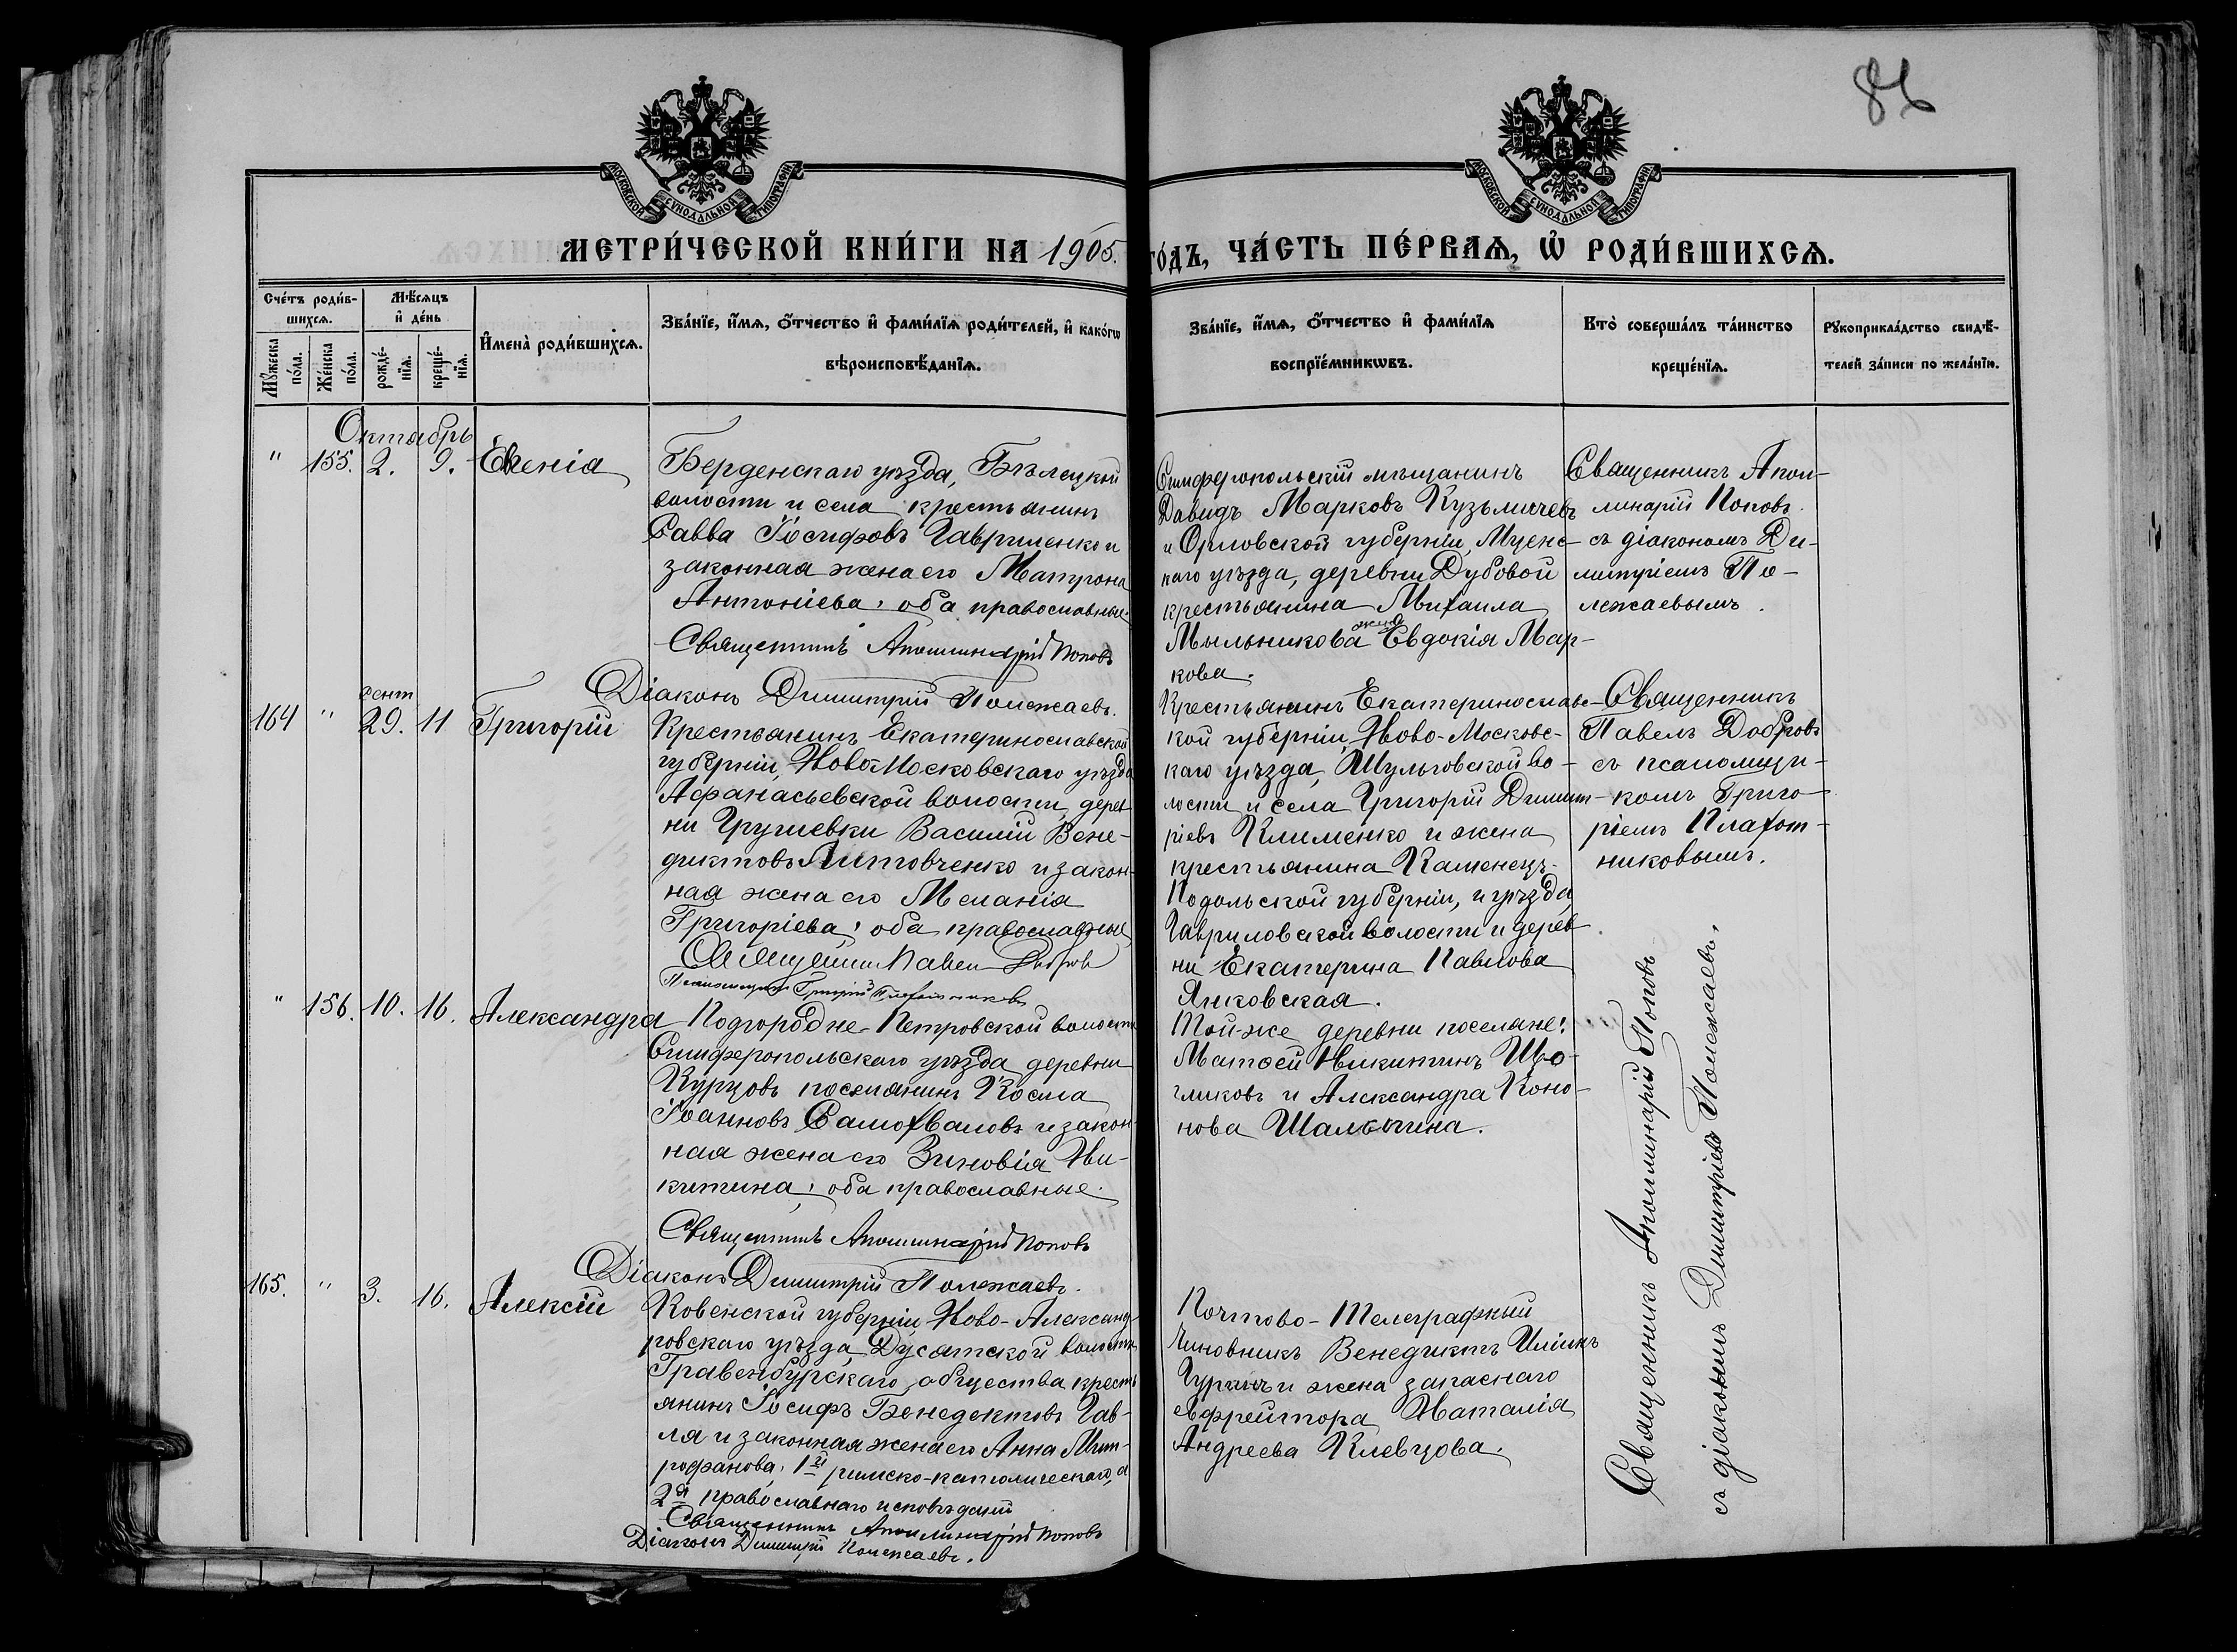 86
МОСКОВСКОЙ СѴНОДАЛЬНОЙ ТИПОГРАФІИ
МОСКОВСКОЙ СѴНОДАЛЬНОЙ ТИПОГРАФІИ
МЕТРИ́ЧЕСКОЙ КНИ́ГИ НА 1905. ГО́ДЪ, ЧА́СТЬ ПЕ́РВАѦ, Ѡ҆ РОДИ́ВШИХСѦ.
Сче́тъ роди́в-
шихсѧ.
Мꙋ́жеска по́ла.
Же́нска по́ла.
Мѣ́сѧцъ
и҆ де́нь
рожде́-
нїѧ.
креще́-
нїѧ.
И҆мена̀ роди́вшихсѧ.
Зва́нїе, и҆́мѧ, ѻ҆́тчество и҆ фами́лїѧ роди́телей, и҆ како́гѡ
вѣроисповѣ́данїѧ.
Зва́нїе, и҆́мѧ, ѻ҆́тчество и҆ фами́лїѧ
воспрїе́мникѡвъ.
Кто̀ соверша́лъ та́инство
креще́нїѧ.
Рꙋкоприкла́дство свидѣ́-
телей за́писи по жела́нїю.
Октябрь
" 155. 2. 9. Евгенія
Берденскаго уѣзда, Бѣлецкой
волости и села крестьянинъ
Савва Іосифовъ Гавриленко и
законная жена его Матрона
Антоніева, оба православные.
Священникъ Аполлинарій Поповъ
Діаконъ Димитрій Полежаевъ.
Симферопольскій мѣщанинъ
Давидъ Марковъ Кузьмичевъ
и Орловской губерніи, Мценс-
каго уѣзда, деревни Дубовой
крестьянина Михаила
Мыльникова жена Евдокія Мар-
кова.
Священникъ Апол-
линарій Поповъ
съ діакономъ Ди-
митріемъ По-
лежаевымъ.
164 " сент 29. 11 Григорій
Крестьянинъ Екатеринославской
губерніи, Ново-Московскаго уѣзда
Афанасьевской волости, дерев
ни Грушевки Василій Вене-
диктовъ Литовченко и закон-
ная жена его Меланія
Григоріева; оба православные
Священникъ Павелъ Добровъ
Псаломщикъ Григорій Плахотниковъ
Крестьянинъ Екатеринославс-
кой губерніи, Ново-Московс-
каго уѣзда, Шульговской во-
лости и села Григорій Димит-
ріевъ Клименко и жена
крестьянина Каменецъ-
Подольской губерніи, и уѣзда,
Гавриловской волости и дерев
ни Екатерина Павлова
Янковская.
Священникъ
Павелъ Добровъ
съ псаломщи-
комъ Григо-
ріемъ Плахот-
никовымъ.
" 156. 10. 16. Александра
Подгородне-Петровской волости
Симферопольскаго уѣзда деревни
Курцовъ поселянинъ Косма
Іоанновъ Самохваловъ и закон-
ная жена его Зиновія Ни-
китина; оба православные.
Священникъ Аполлинарій Поповъ
Діаконъ Димитрій Полежаевъ.
Той-же деревни поселяне:
Матѳей Никитинъ Що-
гликовъ и Александра Коно-
нова Шалыгина.
165. " 3. 16. Алексій
Ковенской губерніи, Ново-Александ-
ровскаго уѣзда, Дусятской волости
Гравенбурскаго общества кресть
янинъ Іосифъ Бенедектовъ Гав-
ля и законная жена его Анна Мит-
рофанова, 1й римско-католическаго, а
2я православнаго исповѣданій
Священникъ Аполлинарій Поповъ
Діаконъ Димитрій Полежаевъ.
Почтово-Телеграфный
чиновникъ Венедиктъ Иліинъ
Гуринъ и жена запаснаго
ефрейтора Наталія
Андреева Клевцова.
Священникъ Аполлинарій Поповъ
съ діакономъ Димитріемъ Полежаевъ.